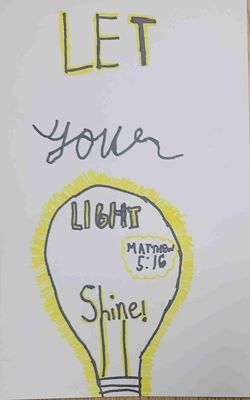 LET
your
LIGHT
MATTHEW
5:16
Shine!